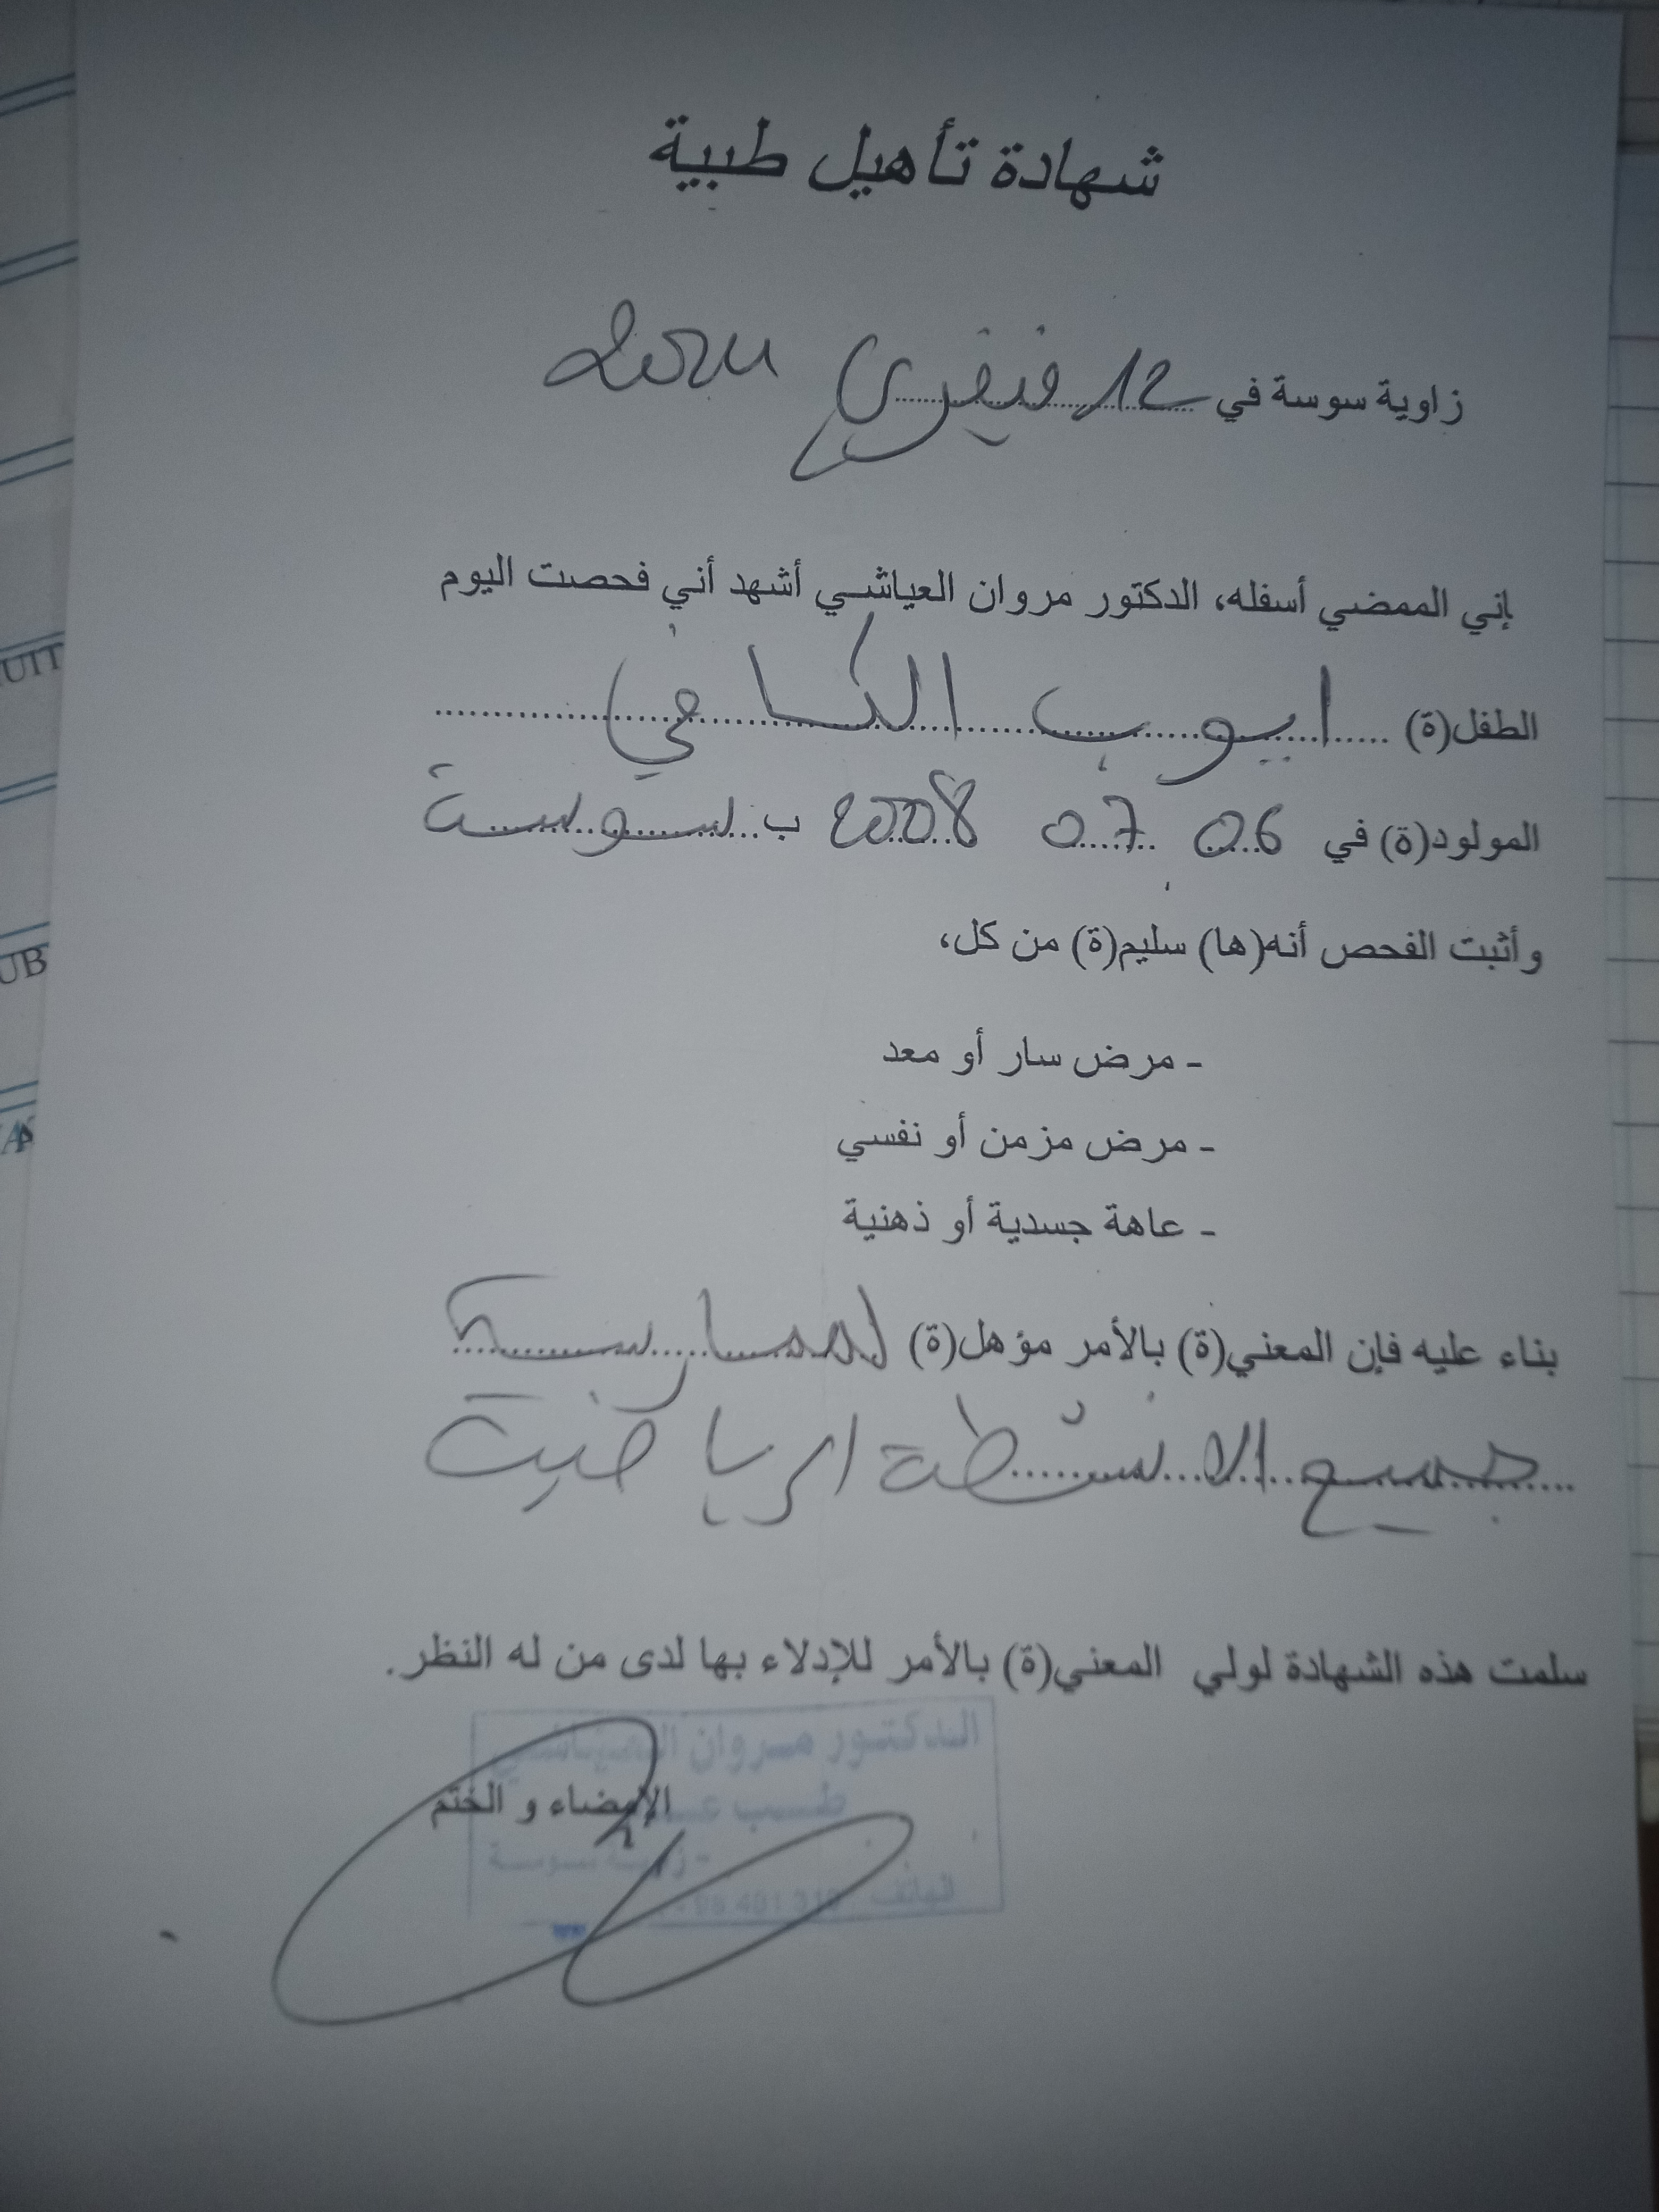 شهادة تأهيل طبية
زاوية سوسة في 12 فيفري 2024
إني الممضي أسفله، الدكتور مروان العياشي أشهد أني فحصت اليوم
الطفل(ة) ايوب الكافي
المولود(ة) في 06 07 2008 ب سوسة
وأثبت الفحص أنه(ها) سليم(ة) من كل،
- مرض سار أو معد
- مرض مزمن أو نفسي
- عاهة جسدية أو ذهنية
بناء عليه فإن المعني(ة) بالأمر مؤهل(ة) لممارسة
جميع الانشطة الرياضية
سلمت هذه الشهادة لولي المعني(ة) بالأمر للإدلاء بها لدى من له النظر.
الدكتور مروان العياشي
الإمضاء و الختم
طب
- زاوية سوسة
الهاتف
UIT
UB